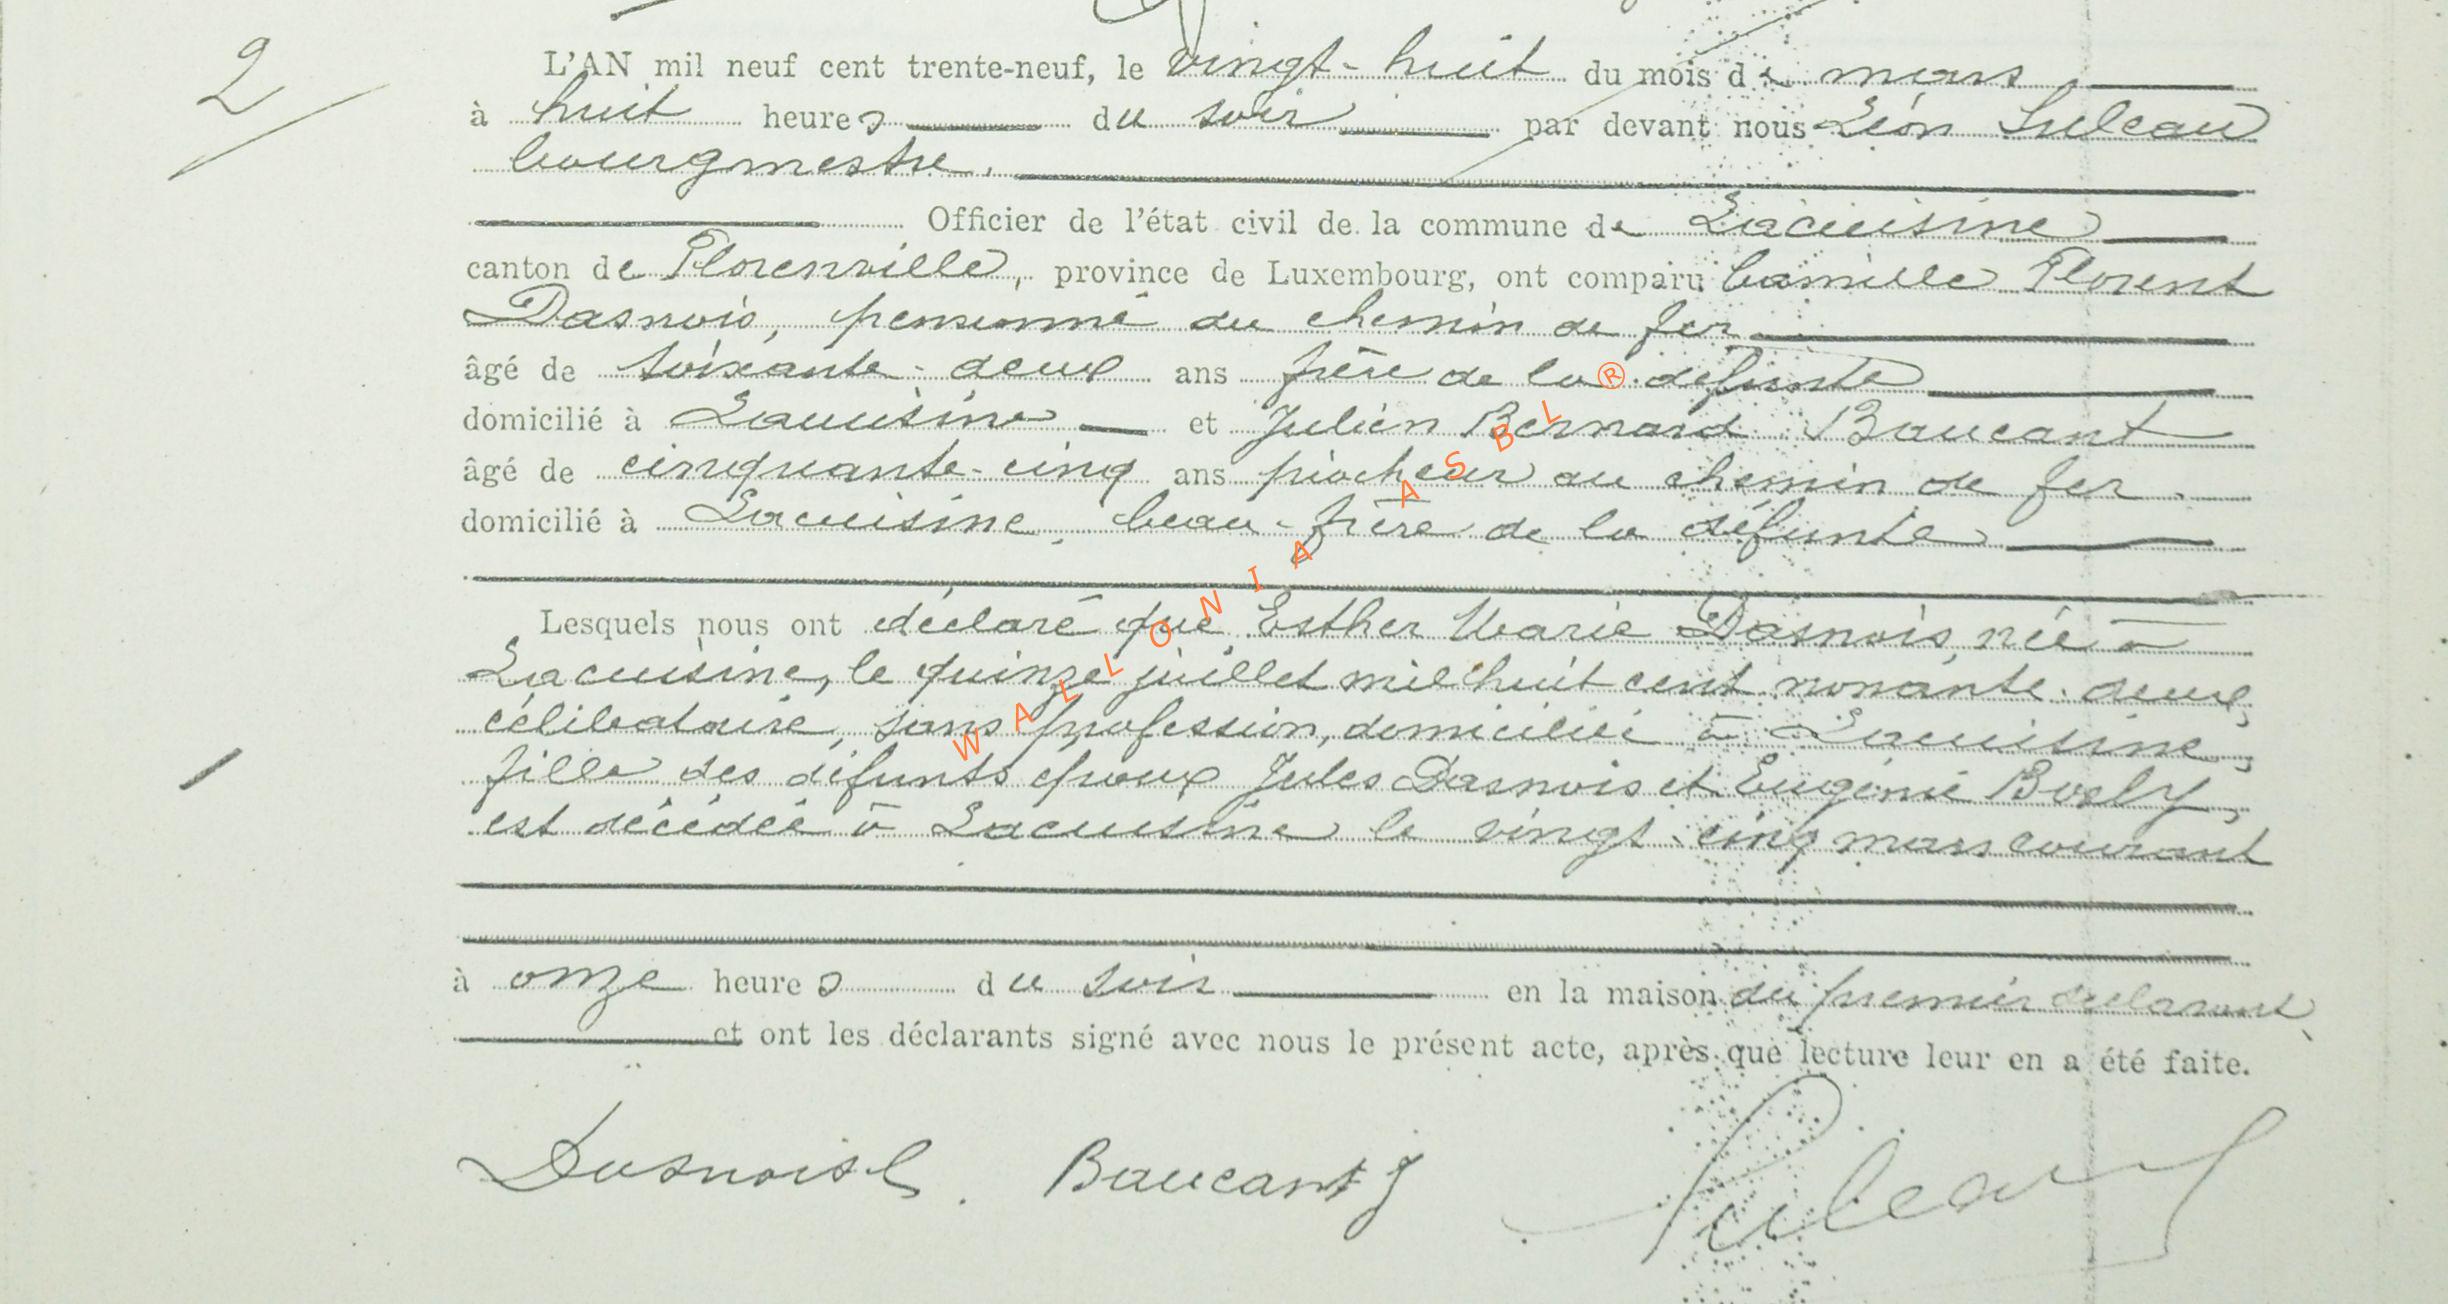 2
L'AN mil neuf cent trente-neuf, le vingt-huit du mois de mars
à huit heures du soir par devant nous Léon Suleau
bourgmestre.
Officier de l'état civil de la commune de Lacuisine
canton de Florenville, province de Luxembourg, ont comparu Camille Florent
Dasnois, pensionné du chemin de fer
âgé de soixante-deux ans frère de la défunte
domicilié à Lacuisine et Julien Bernard Baucant
âgé de cinquante-cinq ans piocheur au chemin de fer.
domicilié à Lacuisine, beau-frère de la défunte
Lesquels nous ont déclaré que Esther Marie Dasnois, née à
Lacuisine, le quinze juillet mil huit cent nonante-deux,
célibataire, sans profession, domiciliée à Lacuisine,
fille des défunts époux Jules Dasnois et Eugénie Boely,
est décédée à Lacuisine le vingt-cinq mars courant
à onze heures du soir en la maison du premier déclarant
et ont les déclarants signé avec nous le présent acte, après que lecture leur en a été faite.
Dasnois C. Baucant J Suleau
WALLONIA ASBL ®